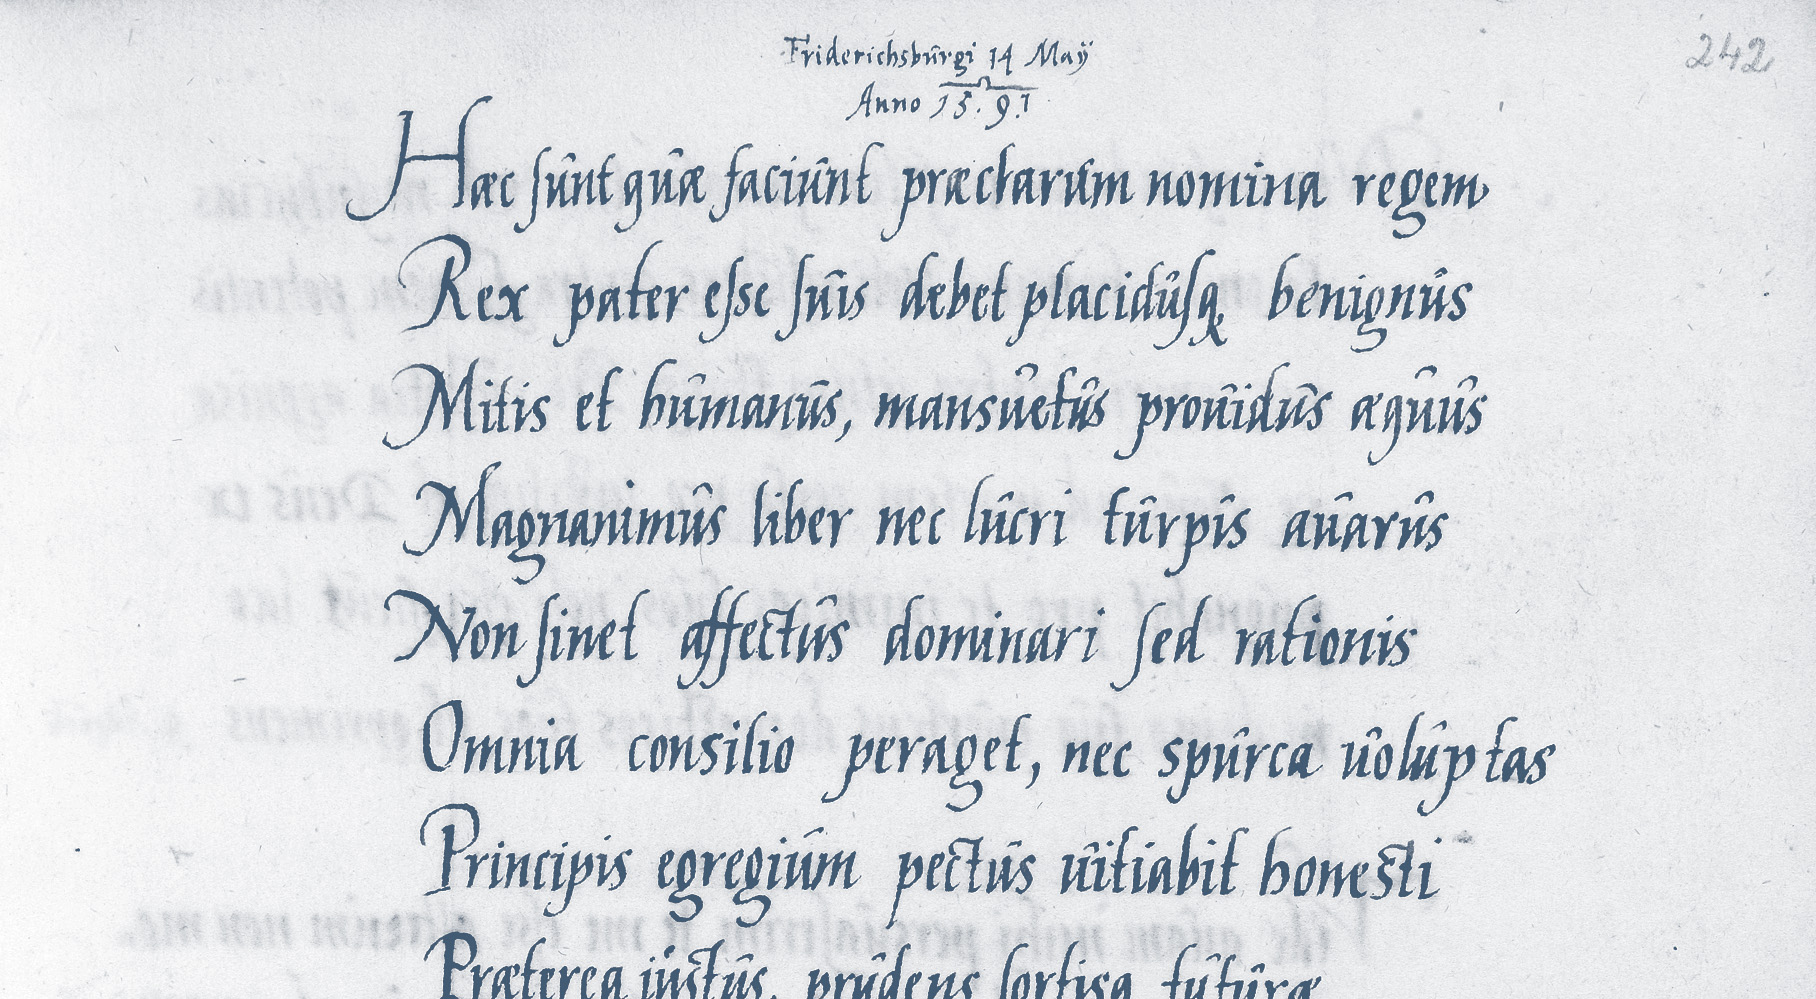 242
Friderichsburgi 14 Maÿ
Anno 15.91
Hæc sunt quæ faciunt præclarum nomina regem
Rex pater esse suis debet placidusq benignus
Mitis et humanus, mansuetus prouidus æquus
Magnanimus liber nec lucri turpis auarus
Non sinet affectus dominari sed rationis
Omnia consilio peraget, nec spurca uoluptas
Principis egregium pectus uitiabit honesti
Præterea iustus, prudens sortisq futuræ